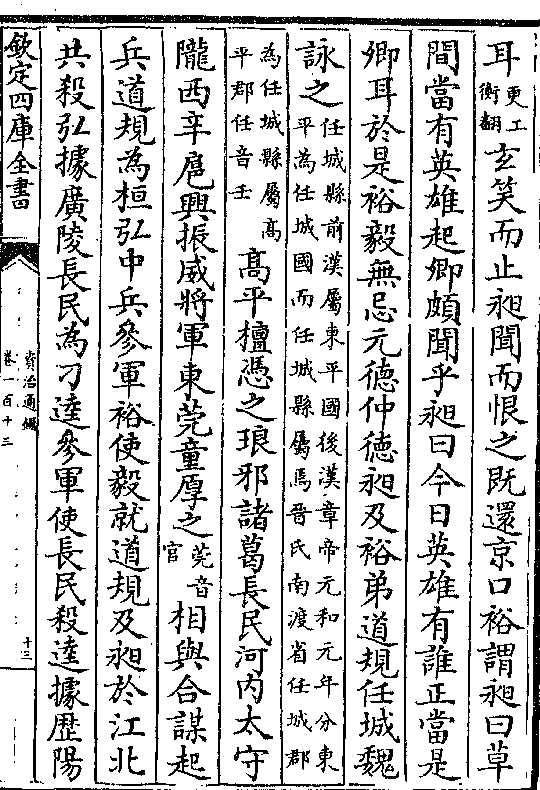 耳更工衡翻玄笑而止昶聞而恨之既還京口裕謂昶曰草
間當有英雄起卿頗聞乎昶曰今日英雄有誰正當是
卿耳於是裕毅無忌元徳仲徳昶及裕弟道規任城魏
詠之任城縣前漢屬東平國後漢章帝元和元年分東平為任城國而任城縣屬焉晉氏南渡省任城郡
為任城縣屬高平郡任音壬高平檀憑之琅邪諸葛長民河内太守
隴西辛扈興振威將軍東莞童厚之莞音官相與合謀起
兵道規為桓弘中兵參軍裕使毅就道規及昶於江北
共殺弘據廣陵長民為刁逵參軍使長民殺逵據歴陽
欽定四庫全書
資治通鑑
卷一百十三
十三